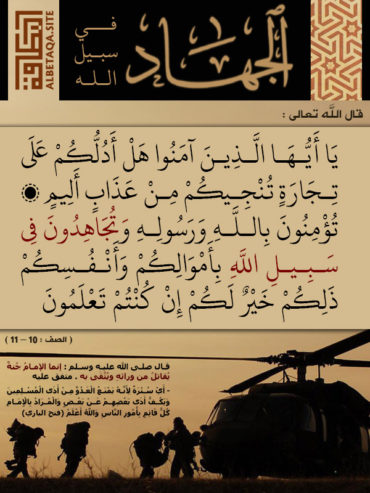 البطاقة
ALBETAQA.SITE
الجهاد
في
سبيل
الله
قال الله تعالى :
يَا أَيُّهَا الَّذِينَ آمَنُوا هَلْ أَدُلُّكُمْ عَلَى
تِجَارَةٍ تُنْجِيكُمْ مِنْ عَذَابٍ أَلِيمٍ
تُؤْمِنُونَ بِاللَّهِ وَرَسُولِهِ وَتُجَاهِدُونَ فِي
سَبِيلِ اللَّهِ بِأَمْوَالِكُمْ وَأَنْفُسِكُمْ
ذَلِكُمْ خَيْرٌ لَكُمْ إِنْ كُنْتُمْ تَعْلَمُونَ
( الصف : 10 – 11 )
قال صلى الله عليه وسلم : إنما الإمامُ جُنةٌ
يُقاتَلُ من ورائِهِ ويُتَّقى به . متفق عليه
- أي سُتْرَةٌ لأنَّهُ يَمْنَعُ الْعَدُوَّ مِنْ أَذَى الْمُسْلِمِينَ
وَيَكُفُّ أَذَى بَعْضِهِمْ عَنْ بَعْضٍ وَالْمُرَادُ بِالْإِمَامِ
كُلُّ قَائِمٍ بِأُمُورِ النَّاسِ وَاللهُ أَعْلَمُ (فتح الباري)